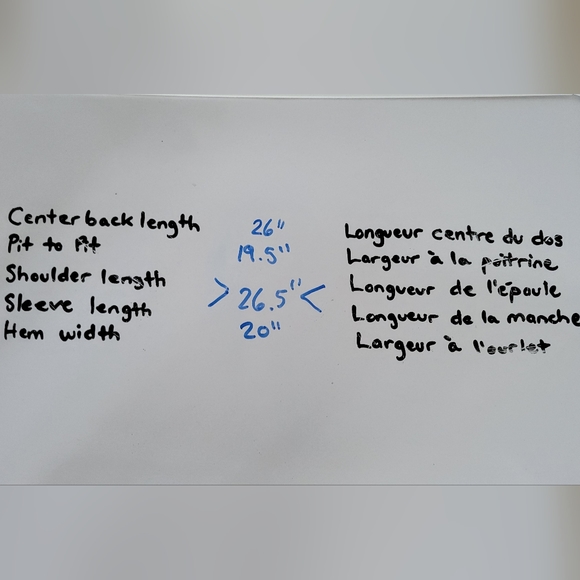 Center back length 26" Longueur centre du dos
Pit to Pit 19.5" Largeur à la poitrine
Shoulder length Longueur de l'épaule
> 26.5" <
Sleeve length Longueur de la manche
Hem width 20" Largeur à l'ourlet